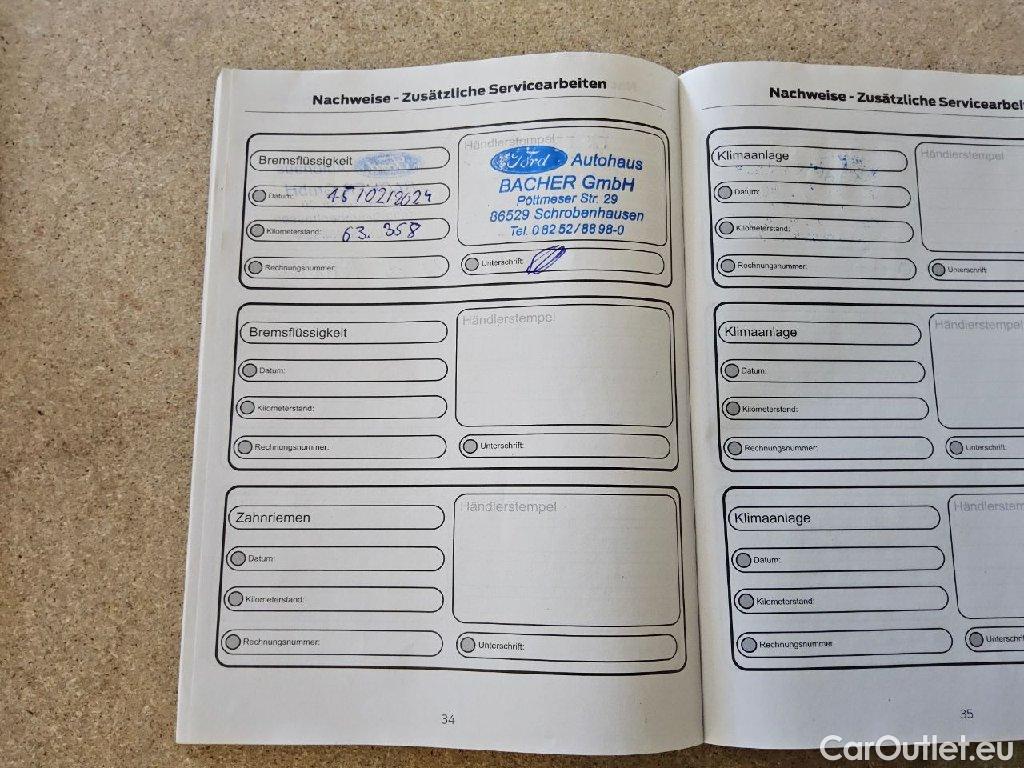 Nachweise - Zusätzliche Servicearbeiten
Bremsflüssigkeit
Datum: 15/02/2024
Kilometerstand: 63.358
Rechnungsnummer:
Händlerstempel
Ford Autohaus
BACHER GmbH
Pöttmeser Str. 29
86529 Schrobenhausen
Tel. 08252/8898-0
Unterschrift:
Bremsflüssigkeit
Datum:
Kilometerstand:
Rechnungsnummer:
Händlerstempel
Unterschrift:
Zahnriemen
Datum:
Kilometerstand:
Rechnungsnummer:
Händlerstempel
Unterschrift:
34
Nachweise - Zusätzliche Servicearbei
Klimaanlage
Datum:
Kilometerstand:
Rechnungsnummer:
Händlerstempel
Unterschrift
Klimaanlage
Datum:
Kilometerstand:
Rechnungsnummer:
Händlerstempel
Unterschrift:
Klimaanlage
Datum:
Kilometerstand:
Rechnungsnummer
Händlerstem
Unterschrift
35
CarOutlet.eu